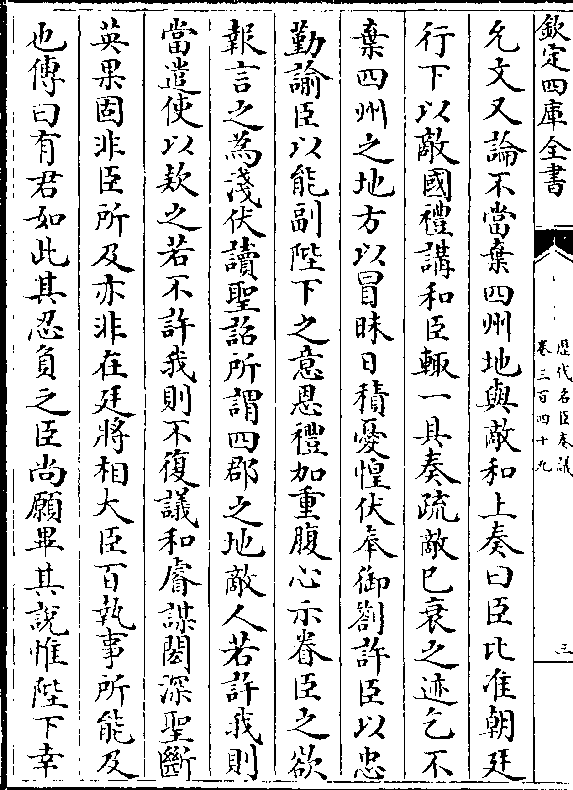 欽定四庫全書
歷代名臣奏議
卷三百四十九
三
允文又論不當棄四州地與敵和上奏曰臣比准朝廷
行下以敵國禮講和臣輒一具奏疏敵已衰之迹乞不
棄四州之地方以冒昧日積憂惶伏奉御劄許臣以忠
勤諭臣以能副陛下之意恩禮加重腹心示眷臣之欲
報言之為淺伏讀聖詔所謂四郡之地敵人若許我則
當遣使以欵之若不許我則不復議和睿謀閎深聖斷
英果固非臣所及亦非在廷將相大臣百執事所能及
也傳曰有君如此其忍負之臣尚願畢其說惟陛下幸